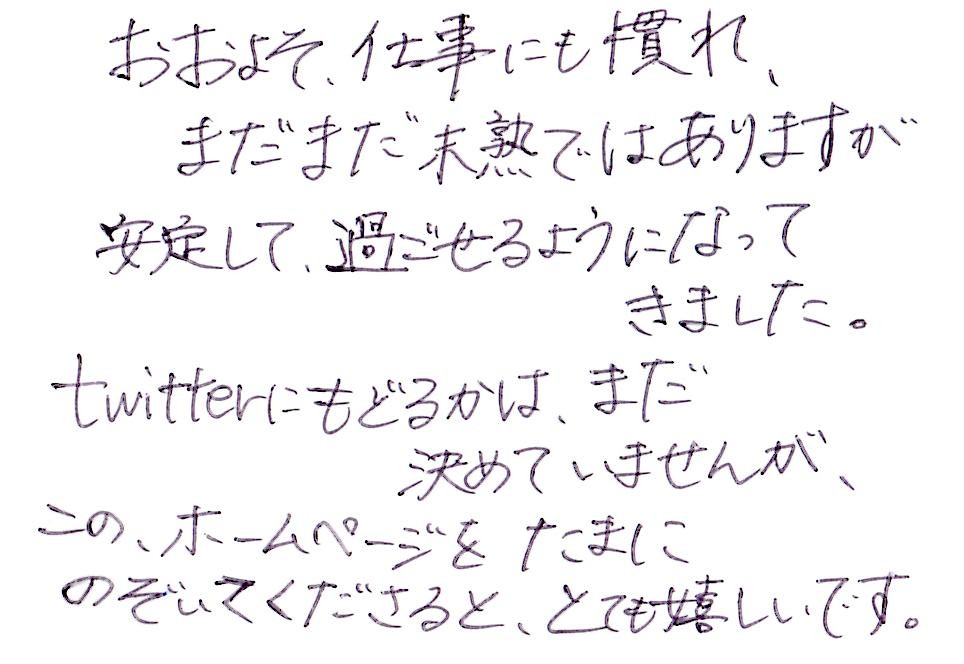 おおよそ、仕事にも慣れ、
まだまだ未熟ではありますが
安定して、過ごせるようになって
きました。
twitterにもどるかは、まだ
決めていませんが、
この、ホームページを たまに
のぞいてくださると、とても嬉しいです。